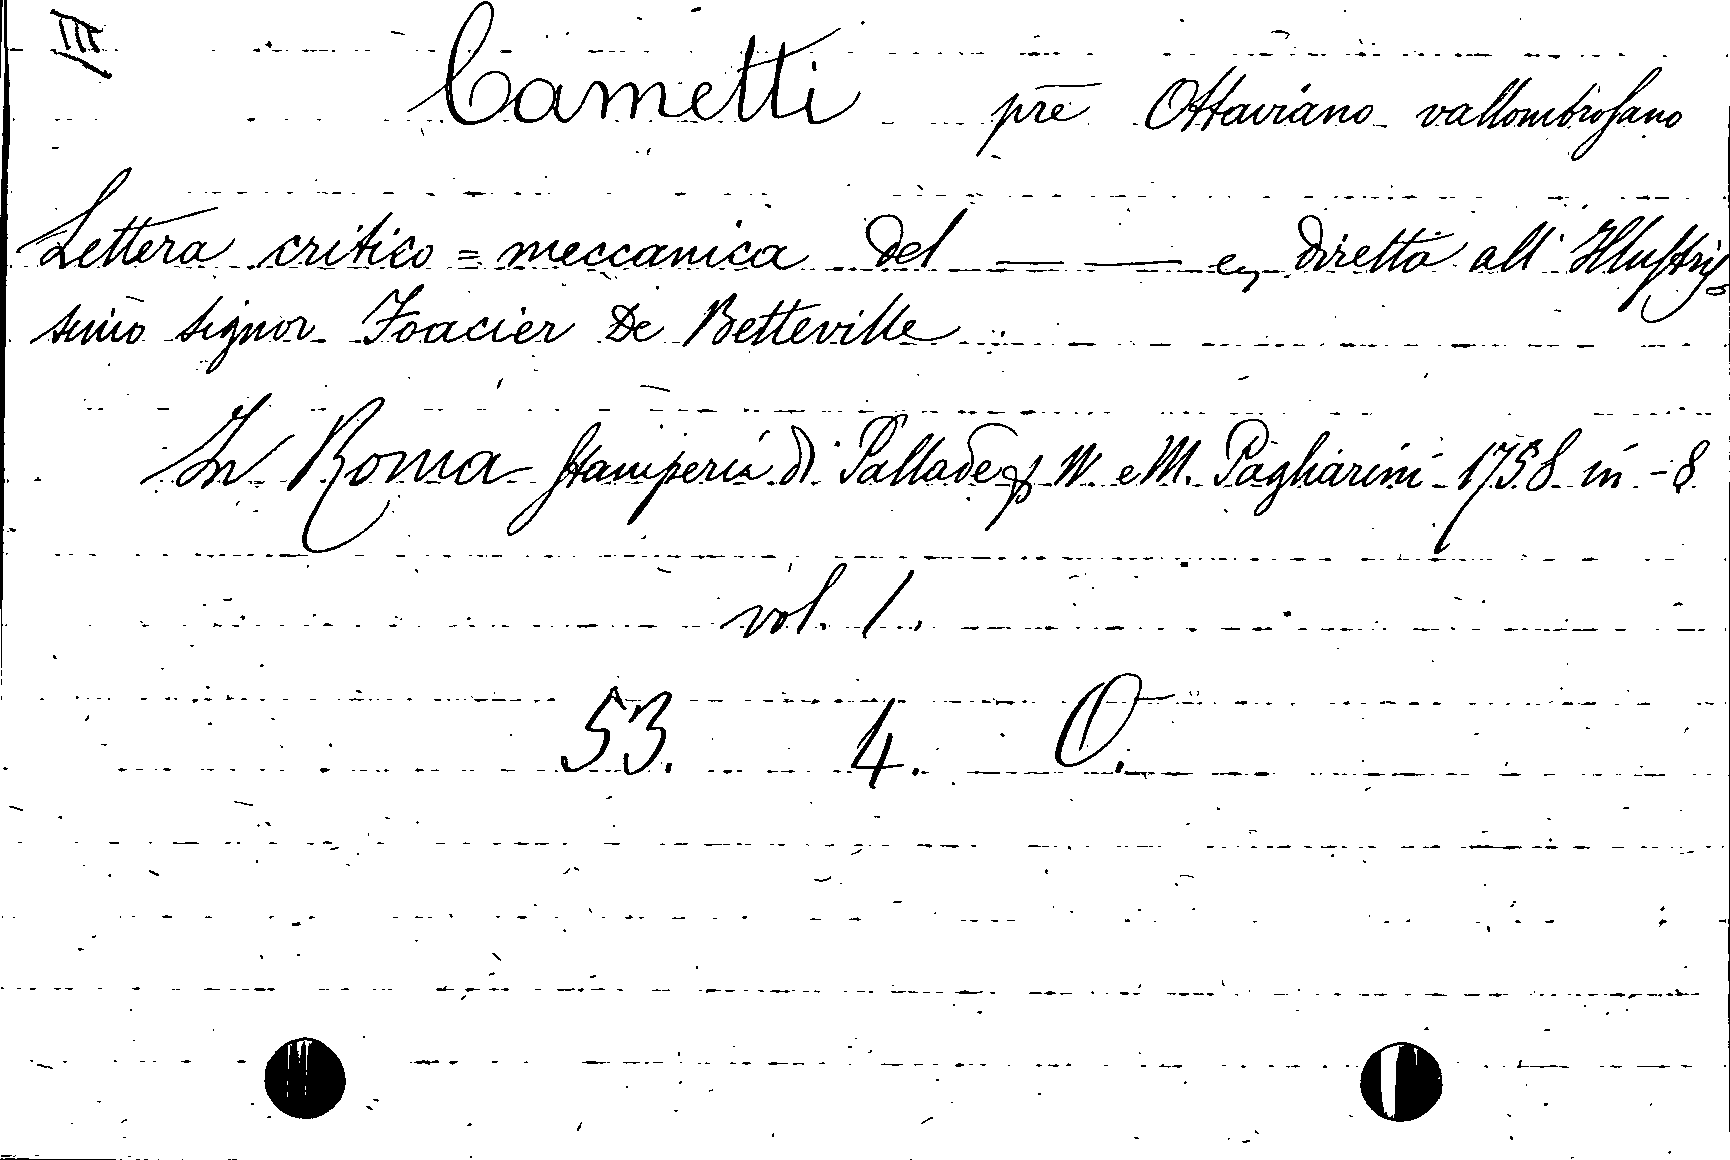 III
Cametti prē Ottaviano vallombrosano
Lettera critico = meccanica del — — diretta all' Illustris=
simo signor Foacier De Betteville
In Roma Stamperia di Pallade N. e M. Pagliarini 1758 in - 8
vol. 1.
53. 4. O.